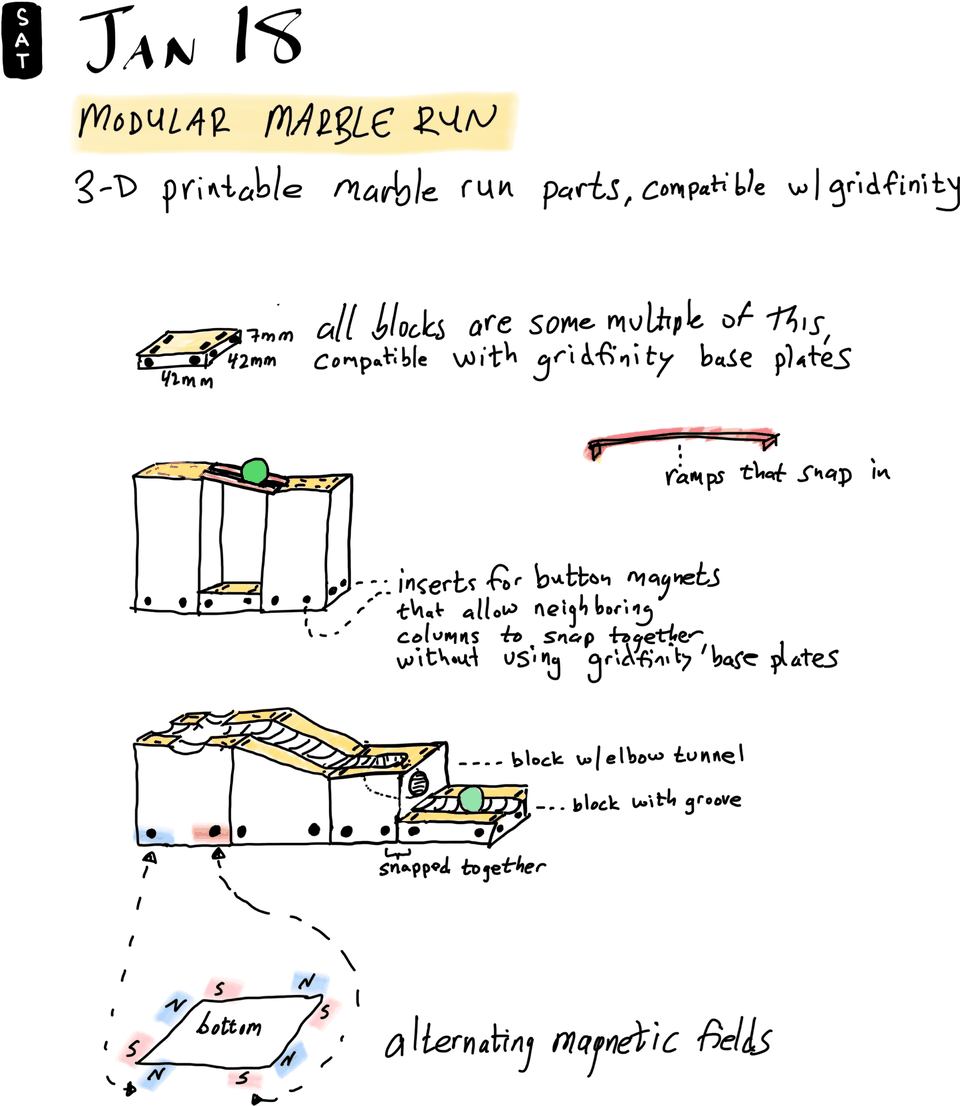 SAT
JAN 18
MODULAR MARBLE RUN
3-D printable marble run parts, compatible w/ gridfinity
7mm
42mm
42mm
all blocks are some multiple of this,
compatible with gridfinity base plates
ramps that snap in
inserts for button magnets
that allow neighboring
columns to snap together,
without using gridfinity base plates
block w/elbow tunnel
block with groove
snapped together
S
N
N
S
S
N
N
S
bottom
alternating magnetic fields